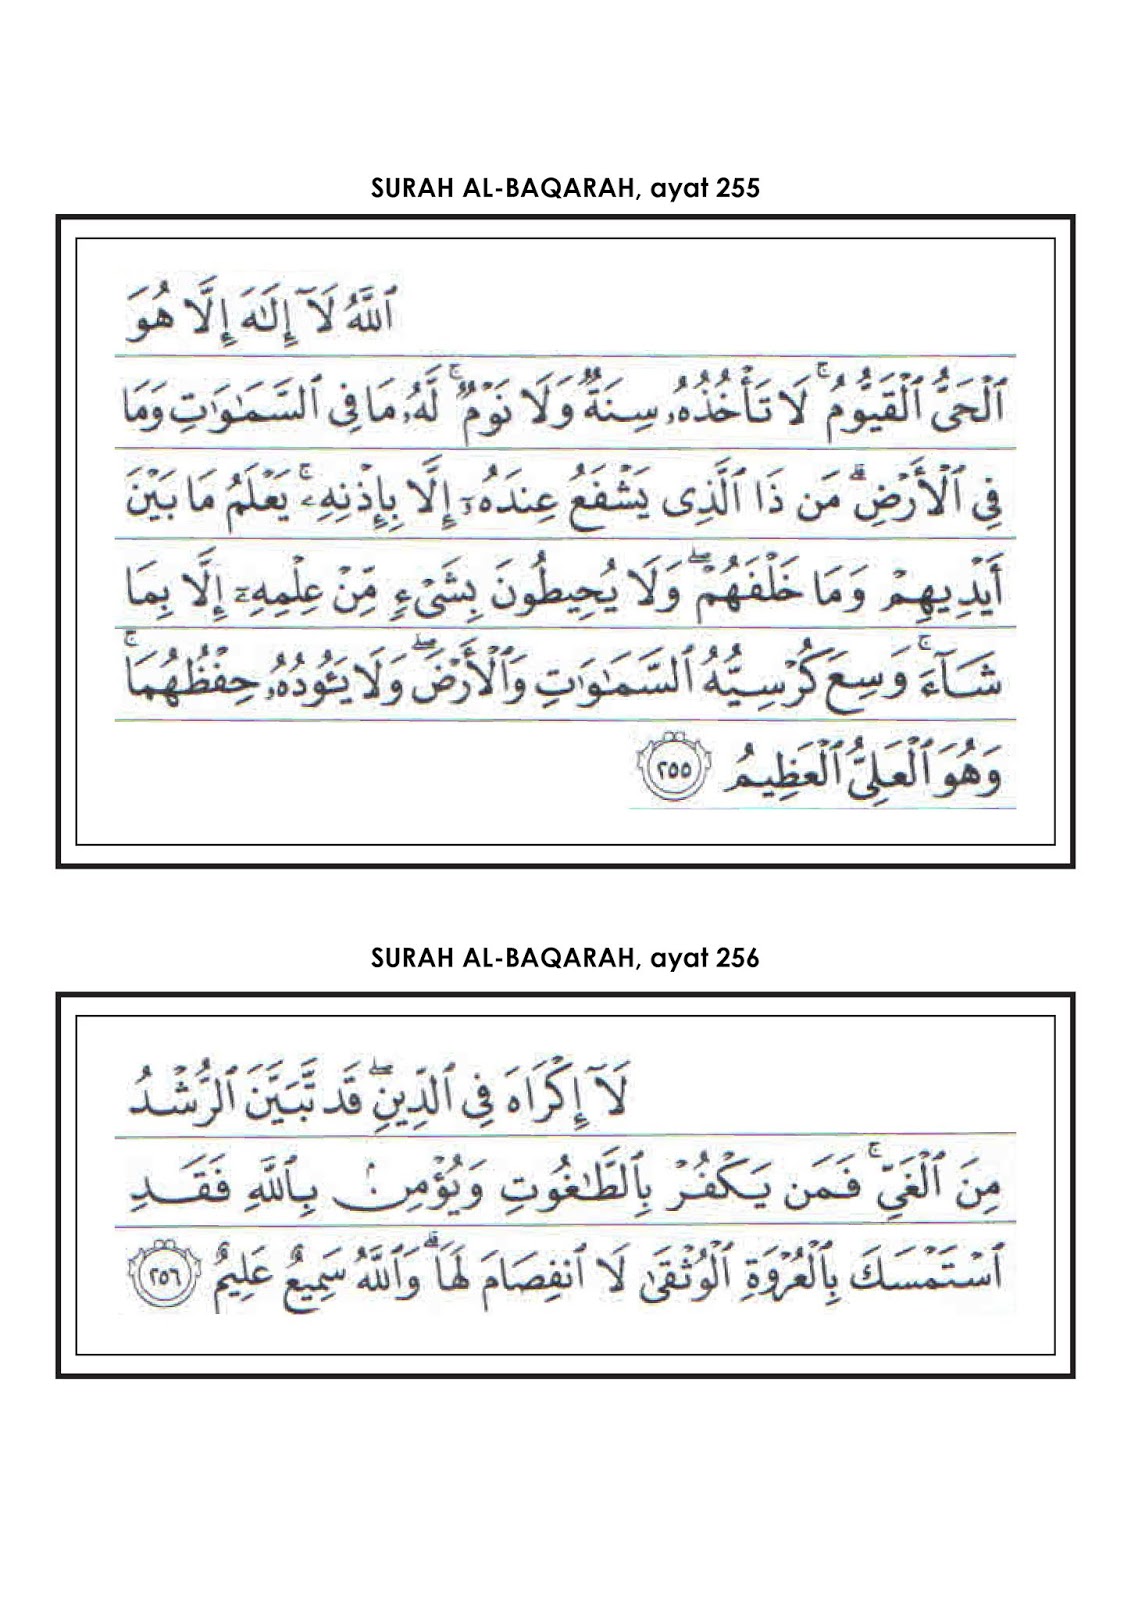 SURAH AL-BAQARAH, ayat 255
ٱللَّهُ لَآ إِلَـٰهَ إِلَّا هُوَ
ٱلْحَىُّ ٱلْقَيُّومُ ۚ لَا تَأْخُذُهُۥ سِنَةٌ وَلَا نَوْمٌ ۚ لَّهُۥ مَا فِى ٱلسَّمَـٰوَٰتِ وَمَا
فِى ٱلْأَرْضِ ۗ مَن ذَا ٱلَّذِى يَشْفَعُ عِندَهُۥٓ إِلَّا بِإِذْنِهِۦ ۚ يَعْلَمُ مَا بَيْنَ
أَيْدِيهِمْ وَمَا خَلْفَهُمْ ۖ وَلَا يُحِيطُونَ بِشَىْءٍ مِّنْ عِلْمِهِۦٓ إِلَّا بِمَا
شَآءَ ۚ وَسِعَ كُرْسِيُّهُ ٱلسَّمَـٰوَٰتِ وَٱلْأَرْضَ ۖ وَلَا يَـُٔودُهُۥ حِفْظُهُمَا ۚ
وَهُوَ ٱلْعَلِىُّ ٱلْعَظِيمُ ٢٥٥
SURAH AL-BAQARAH, ayat 256
لَآ إِكْرَاهَ فِى ٱلدِّينِ ۖ قَد تَّبَيَّنَ ٱلرُّشْدُ
مِنَ ٱلْغَىِّ ۚ فَمَن يَكْفُرْ بِٱلطَّـٰغُوتِ وَيُؤْمِنۢ بِٱللَّهِ فَقَدِ
ٱسْتَمْسَكَ بِٱلْعُرْوَةِ ٱلْوُثْقَىٰ لَا ٱنفِصَامَ لَهَا ۗ وَٱللَّهُ سَمِيعٌ عَلِيمٌ ٢٥٦